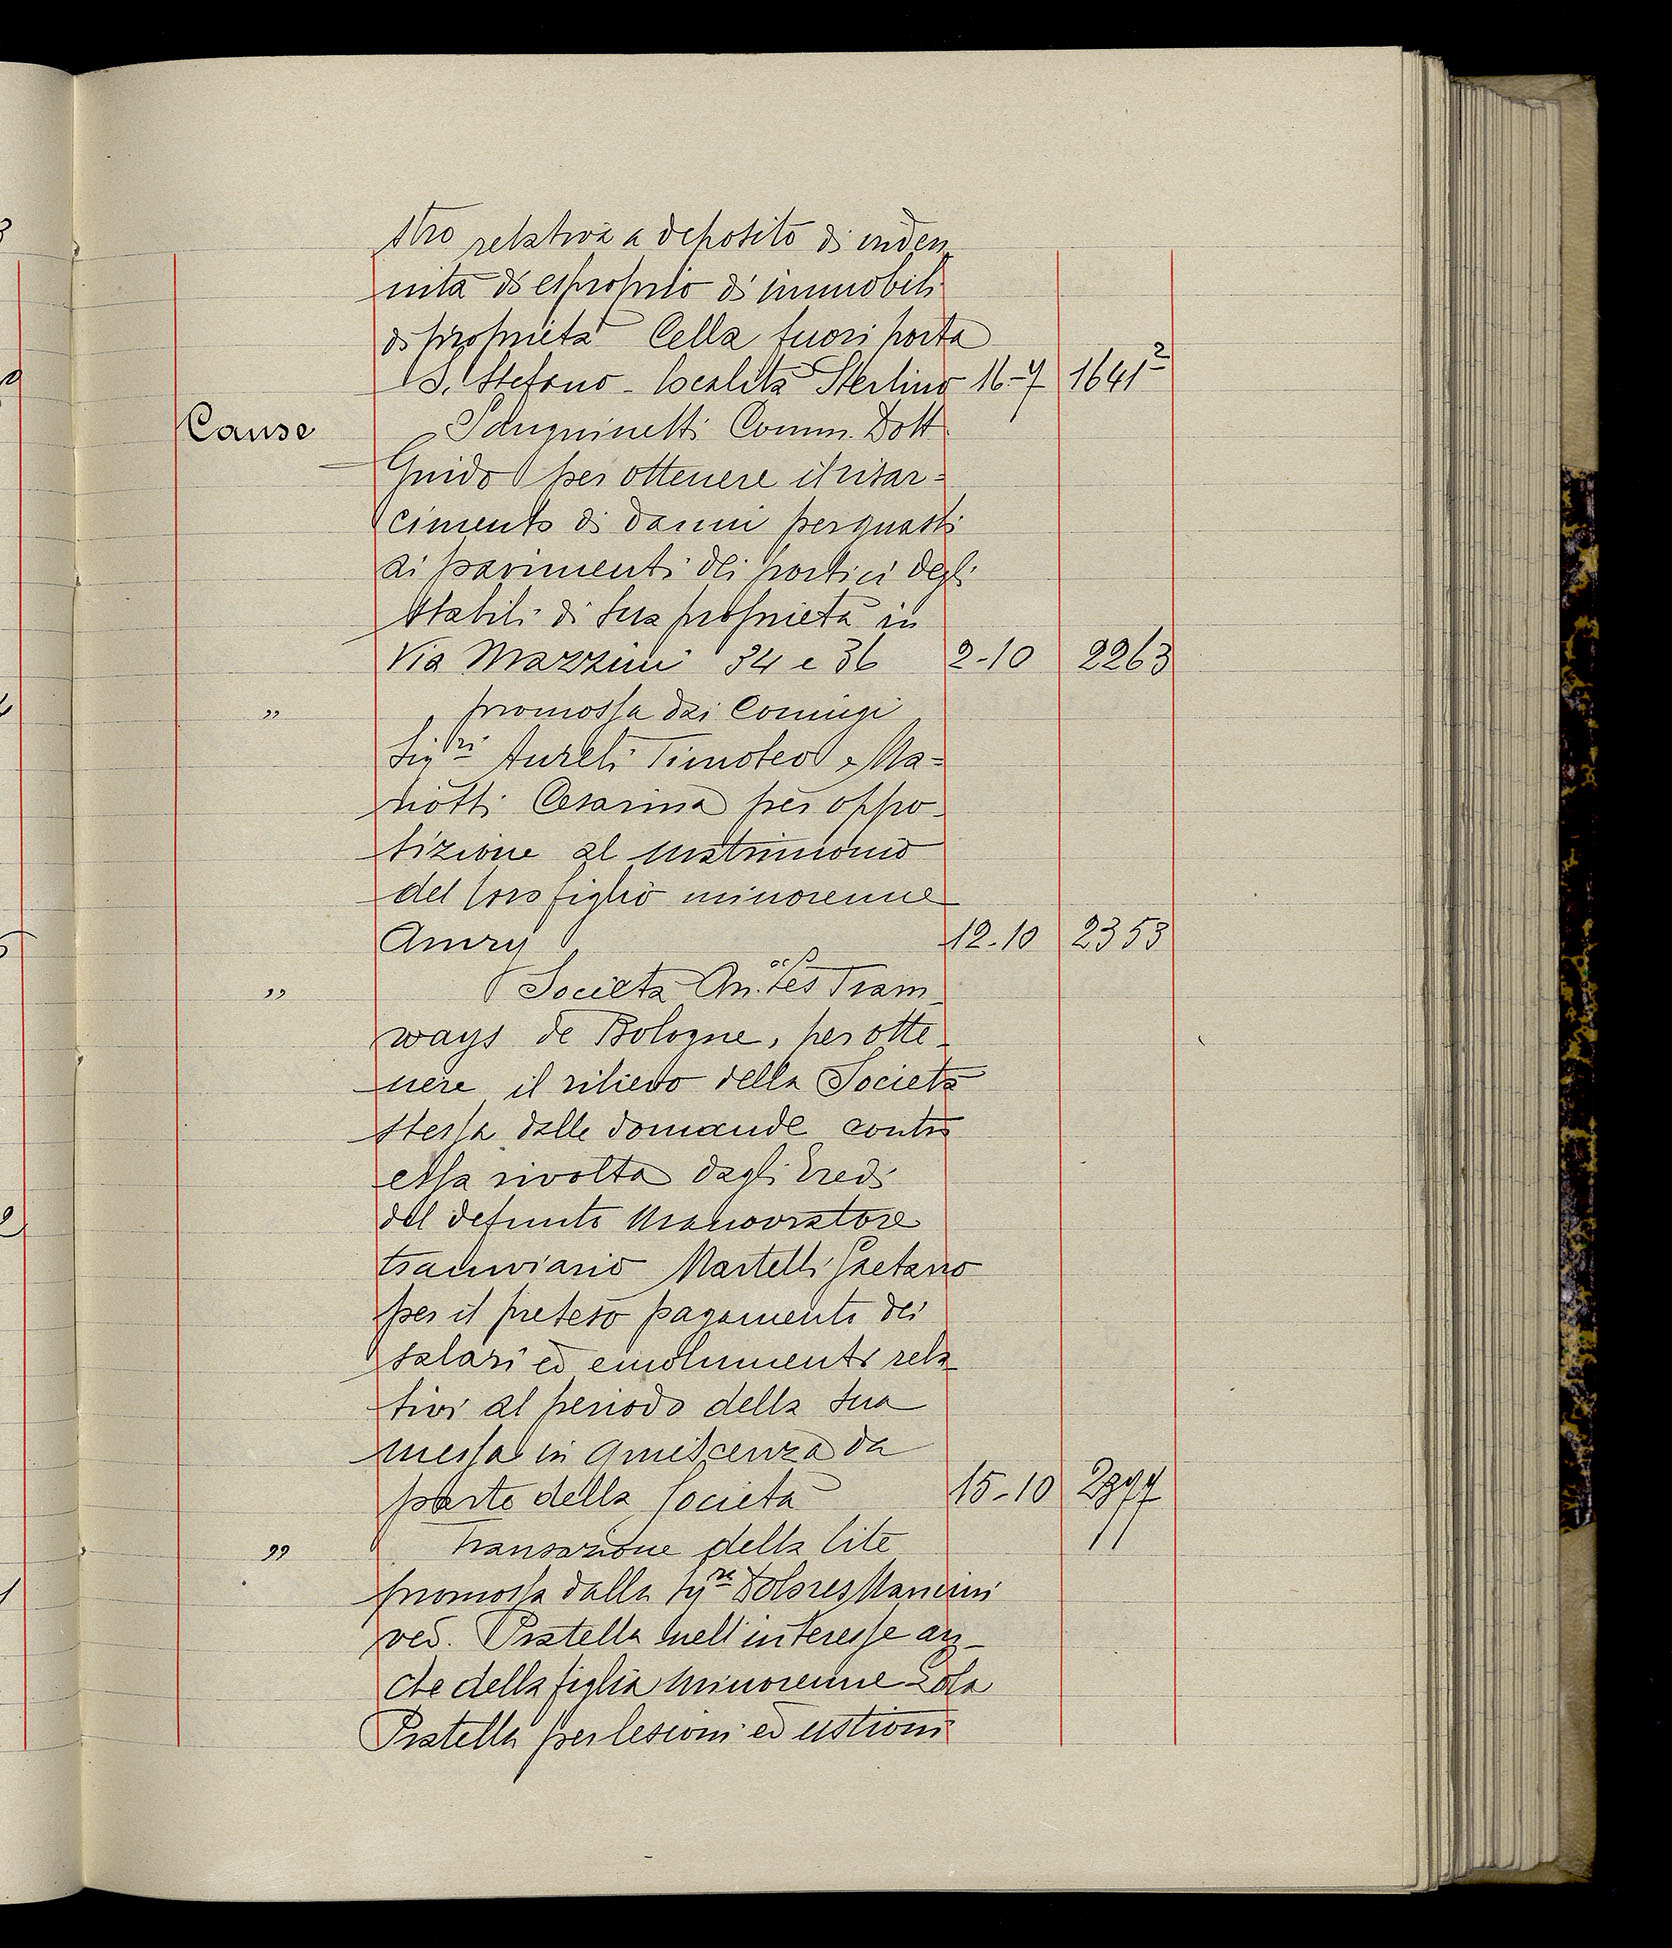 stro relativa a deposito di inden_
nità di esproprio di immobili
di proprietà Cella fuori porta
S. Stefano - località Sterlino 16-7 1641²
Cause Sanguinetti Comm. Dott
Guido per ottenere il risar=
cimento di danni per guasti
ai pavimenti dei portici degli
stabili di sua proprietà in
Via Mazzini 34 e 36 2-10 2263
" promossa dai Coniugi
Sigri Aureli Timoteo e Ma=
riotti Cesarina per oppo_
sizione al matrimonio
del loro figlio minorenne
Amry 12-10 2353
" Società An. Les Tram_
ways de Bologne, per otte_
nere il rilievo della Società
stessa dalle domande contro
essa rivolta dagli Eredi
del defunto manovratore
tramviario Martelli Gaetano
per il preteso pagamento dei
salari ed emolumenti rela
tivi al periodo della sua
messa in quiescenza da
parte della Società 15-10 2377
" Transazione della lite
promossa dalla Sigra Dolores Mancini
ved. Pratella nell'interesse an_
che della figlia minorenne Lola
Pratella per lesioni ed ustioni